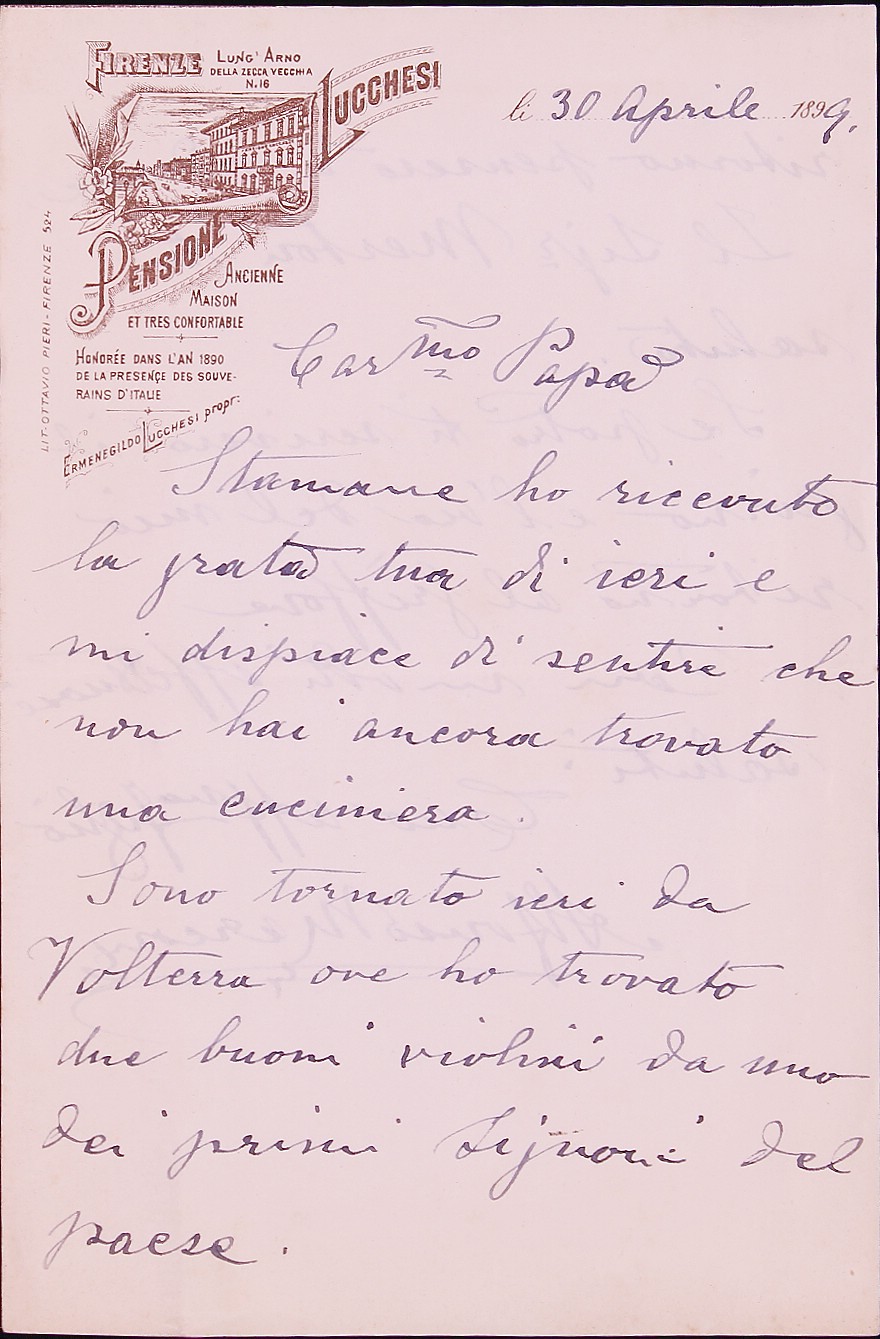 FIRENZE
LUNG' ARNO
DELLA ZECCA VECCHIA
N.16
LUCCHESI
PENSIONE
ANCIENNE
MAISON
ET TRES CONFORTABLE
HONORÉE DANS L'AN 1890
DE LA PRESENÇE DES SOUVE-
RAINS D'ITALIE
ERMENEGILDO LUCCHESI propr:
LIT-OTTAVIO PIERI-FIRENZE 524
li 30 Aprile 1899.
Carmo Papà
Stamane ho riccevuto
la grata tua di ieri e
mi dispiace di sentire che
non hai ancora trovato
una cuciniera.
Sono tornato ieri da
Volterra ove ho trovato
due buoni violini da uno
dei primi Signori del
paese.